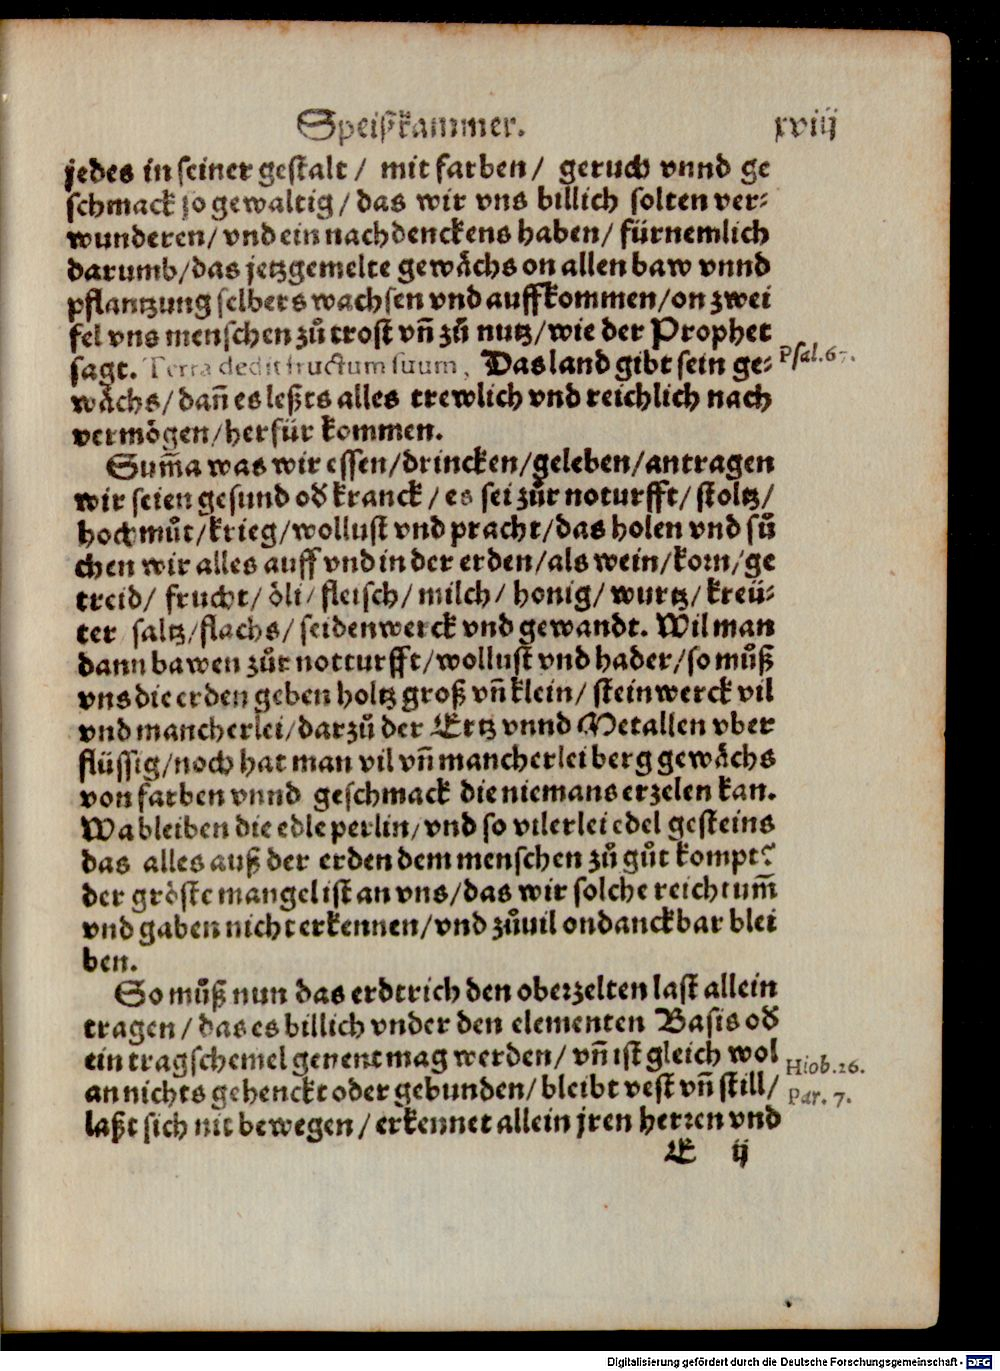 Speißkammer. xviij
jedes in seiner gestalt / mit farben / geruch vnnd ge
schmack so gewaltig / das wir vns billich solten ver⸗
wunderen / vnd ein nachdenckens haben / fürnemlich
darumb / das jetzgemelte gewächs on allen baw vnnd
pflantzung selbers wachsen vnd auffkommen / on zwei
fel vns menschen zů trost vñ zů nutz / wie der Prophet
sagt. Terra dedit fructum suum, Das land gibt sein ge⸗
Psal.67.
wächs / dañ es leßts alles trewlich vnd reichlich nach
vermögen / herfür kommen.
Sum̃a was wir essen / drincken / geleben / antragen
wir seien gesund od kranck / es sei zůr noturfft / stoltz /
hochmůt / krieg / wollust vnd pracht / das holen vnd sů
chen wir alles auff vnd in der erden / als wein / korn / ge
treid / frucht / öli / fleisch / milch / honig / wurtz / kreü⸗
ter saltz / flachs / seidenwerck vnd gewandt. Wil man
dann bawen zůr notturfft / wollust vnd hader / so můß
vns die erden geben holtz groß vñ klein / steinwerck vil
vnd mancherlei / darzů der Ertz vnnd Metallen vber
flüssig / noch hat man vil vñ mancherlei berg gewächs
von farben vnnd geschmack die niemans erzelen kan.
Wa bleiben die edle perlin / vnd so vilerlei edel gesteins
das alles auß der erden dem menschen zů gůt kompt?
der gröste mangel ist an vns / das wir solche reichtum̃
vnd gaben nicht erkennen / vnd zůuil ondanckbar blei
ben.
So můß nun das erdtrich den oberzelten last allein
tragen / das es billich vnder den elementen Basis od
ein tragschemel genent mag werden / vñ ist gleich wol
Hiob.26.
an nichts gehenckt oder gebunden / bleibt vest vñ still /
Par. 7.
laßt sich nit bewegen / erkennet allein jren herren vnd
E ij
Digitalisierung gefördert durch die Deutsche Forschungsgemeinschaft - DFG